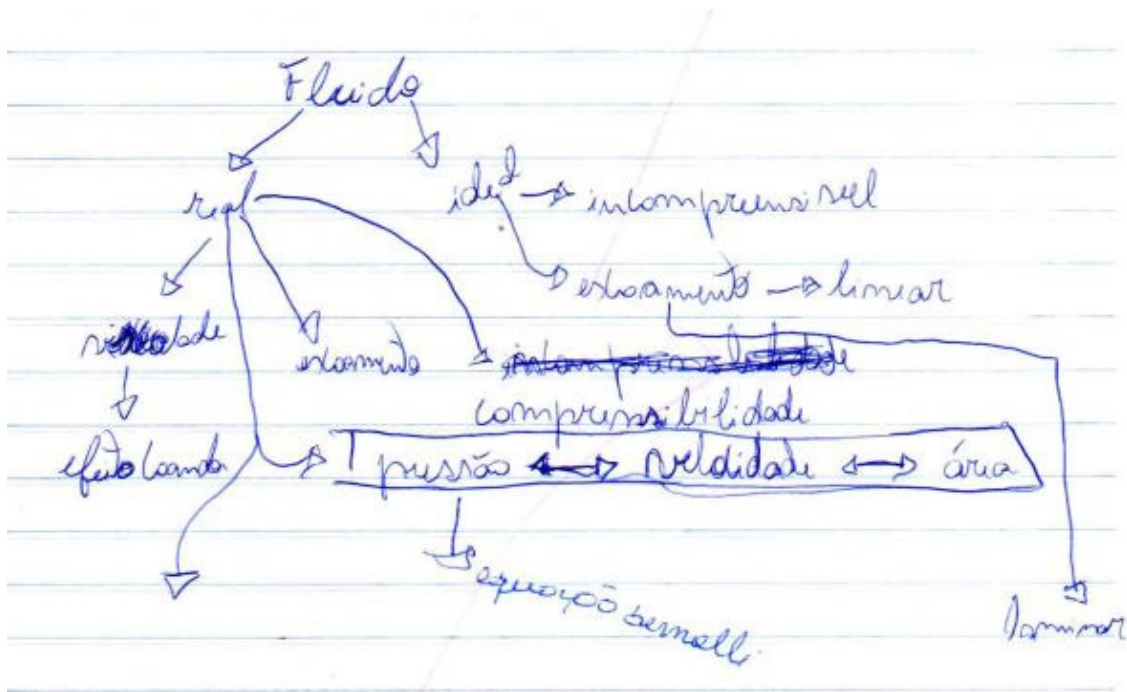 Fluido
real ideal → incompreensivel
escoamento → linear
escoamento
compressibilidade
efeito Coanda pressão ↔ velocidade ↔ área
equação bernolli